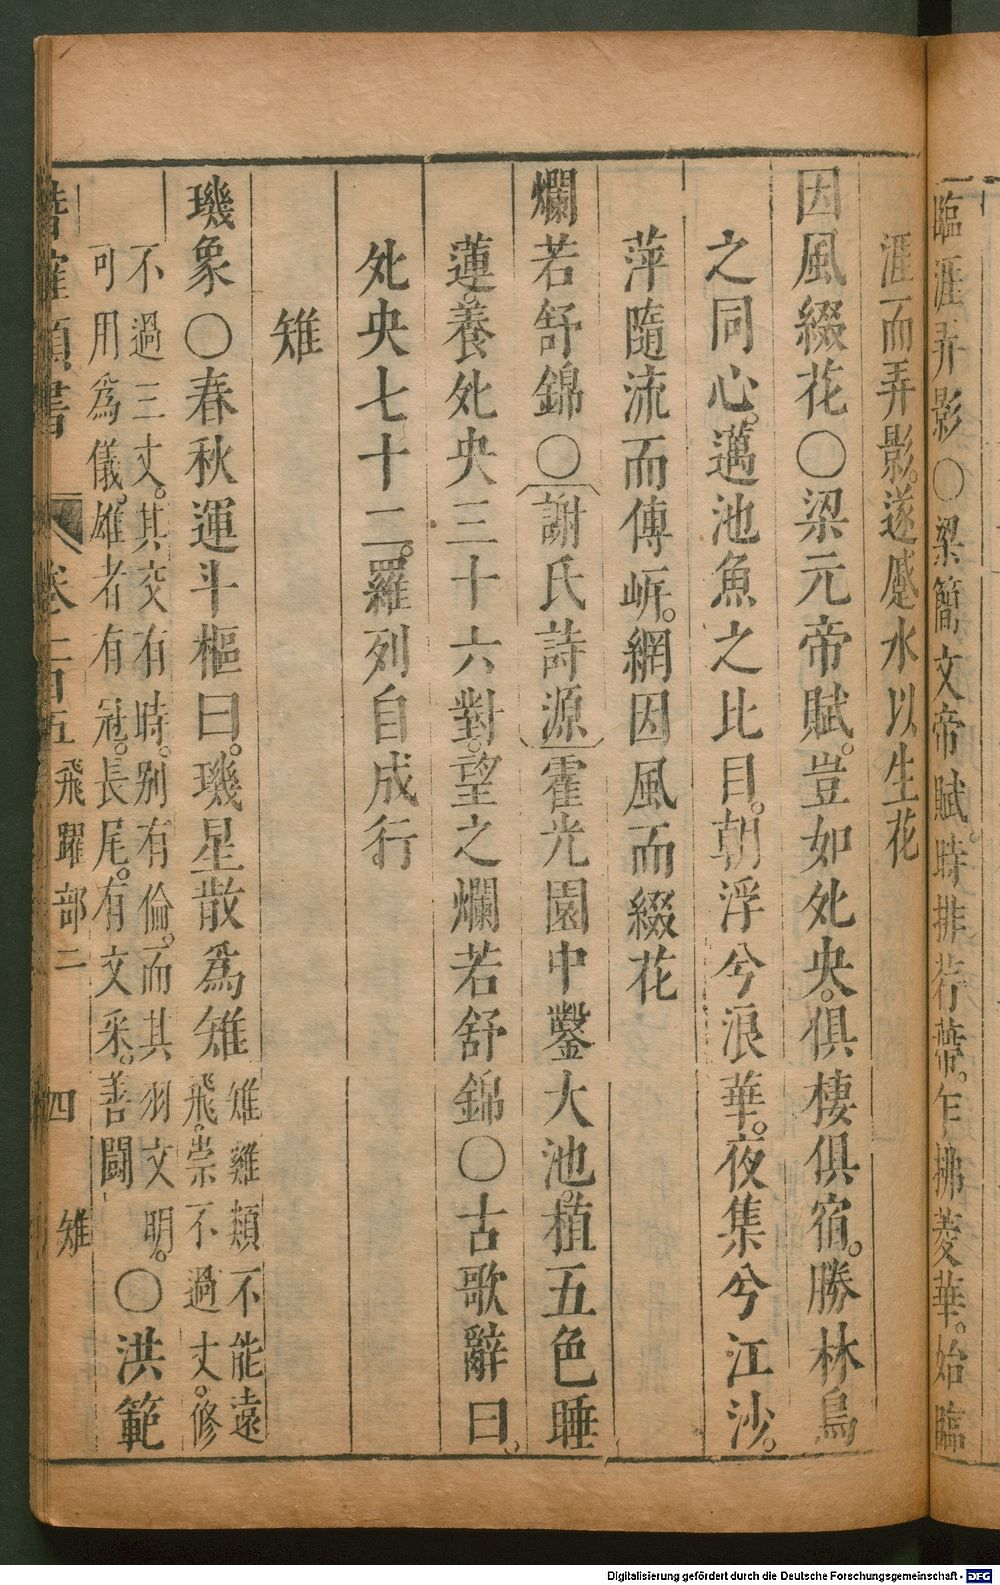 臨涯弄影〇梁簡文帝賦。時排荇帶。乍拂菱華。始臨
涯而弄影。遂蹙水以生花
因風綴花〇梁元帝賦。豈如䲮央。俱棲俱宿。勝林鳥
之同心。邁池魚之比目。朝浮兮浪華。夜集兮江沙。
萍隨流而傳岍。網因風而綴花
爛若舒錦〇謝氏詩源霍光園中鑿大池。植五色睡
蓮。養䲮央三十六對。望之爛若舒錦〇古歌辭曰。
䲮央七十二。羅列自成行
雉
璣象〇春秋運斗樞曰。璣星散爲雉雉雞類不能遠
飛。崇不過丈。修
不過三丈。其交有時。別有倫。而其羽文明。
可用爲儀。雄者有冠。長尾。有文采。善鬪〇洪範
潛確類書 卷一百五 飛躍部二 四 雉
Digitalisierung gefördert durch die Deutsche Forschungsgemeinschaft - DFG